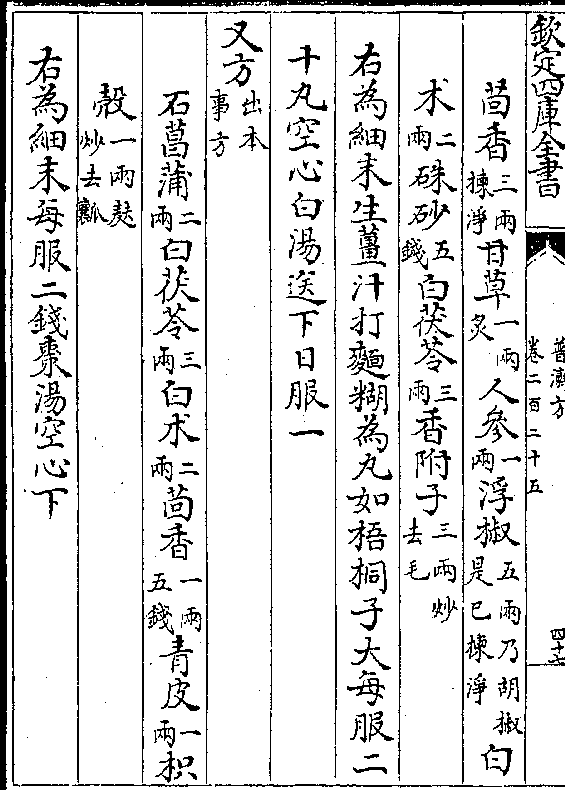 欽定四庫全書
普濟方
卷二百二十五
四十七
茴香三兩揀淨甘草一兩炙人參一兩浮椒五兩乃胡椒是已揀淨白
术二兩硃砂五錢白茯苓三兩香附子三兩炒去毛
右為細末生薑汁打麵糊為丸如梧桐子大每服二
十丸空心白湯送下日服一
又方出本事方
石菖蒲二兩白茯苓三兩白术二兩茴香一兩五錢青皮一兩枳
殼一兩麩炒去瓤
右為細末每服二錢棗湯空心下